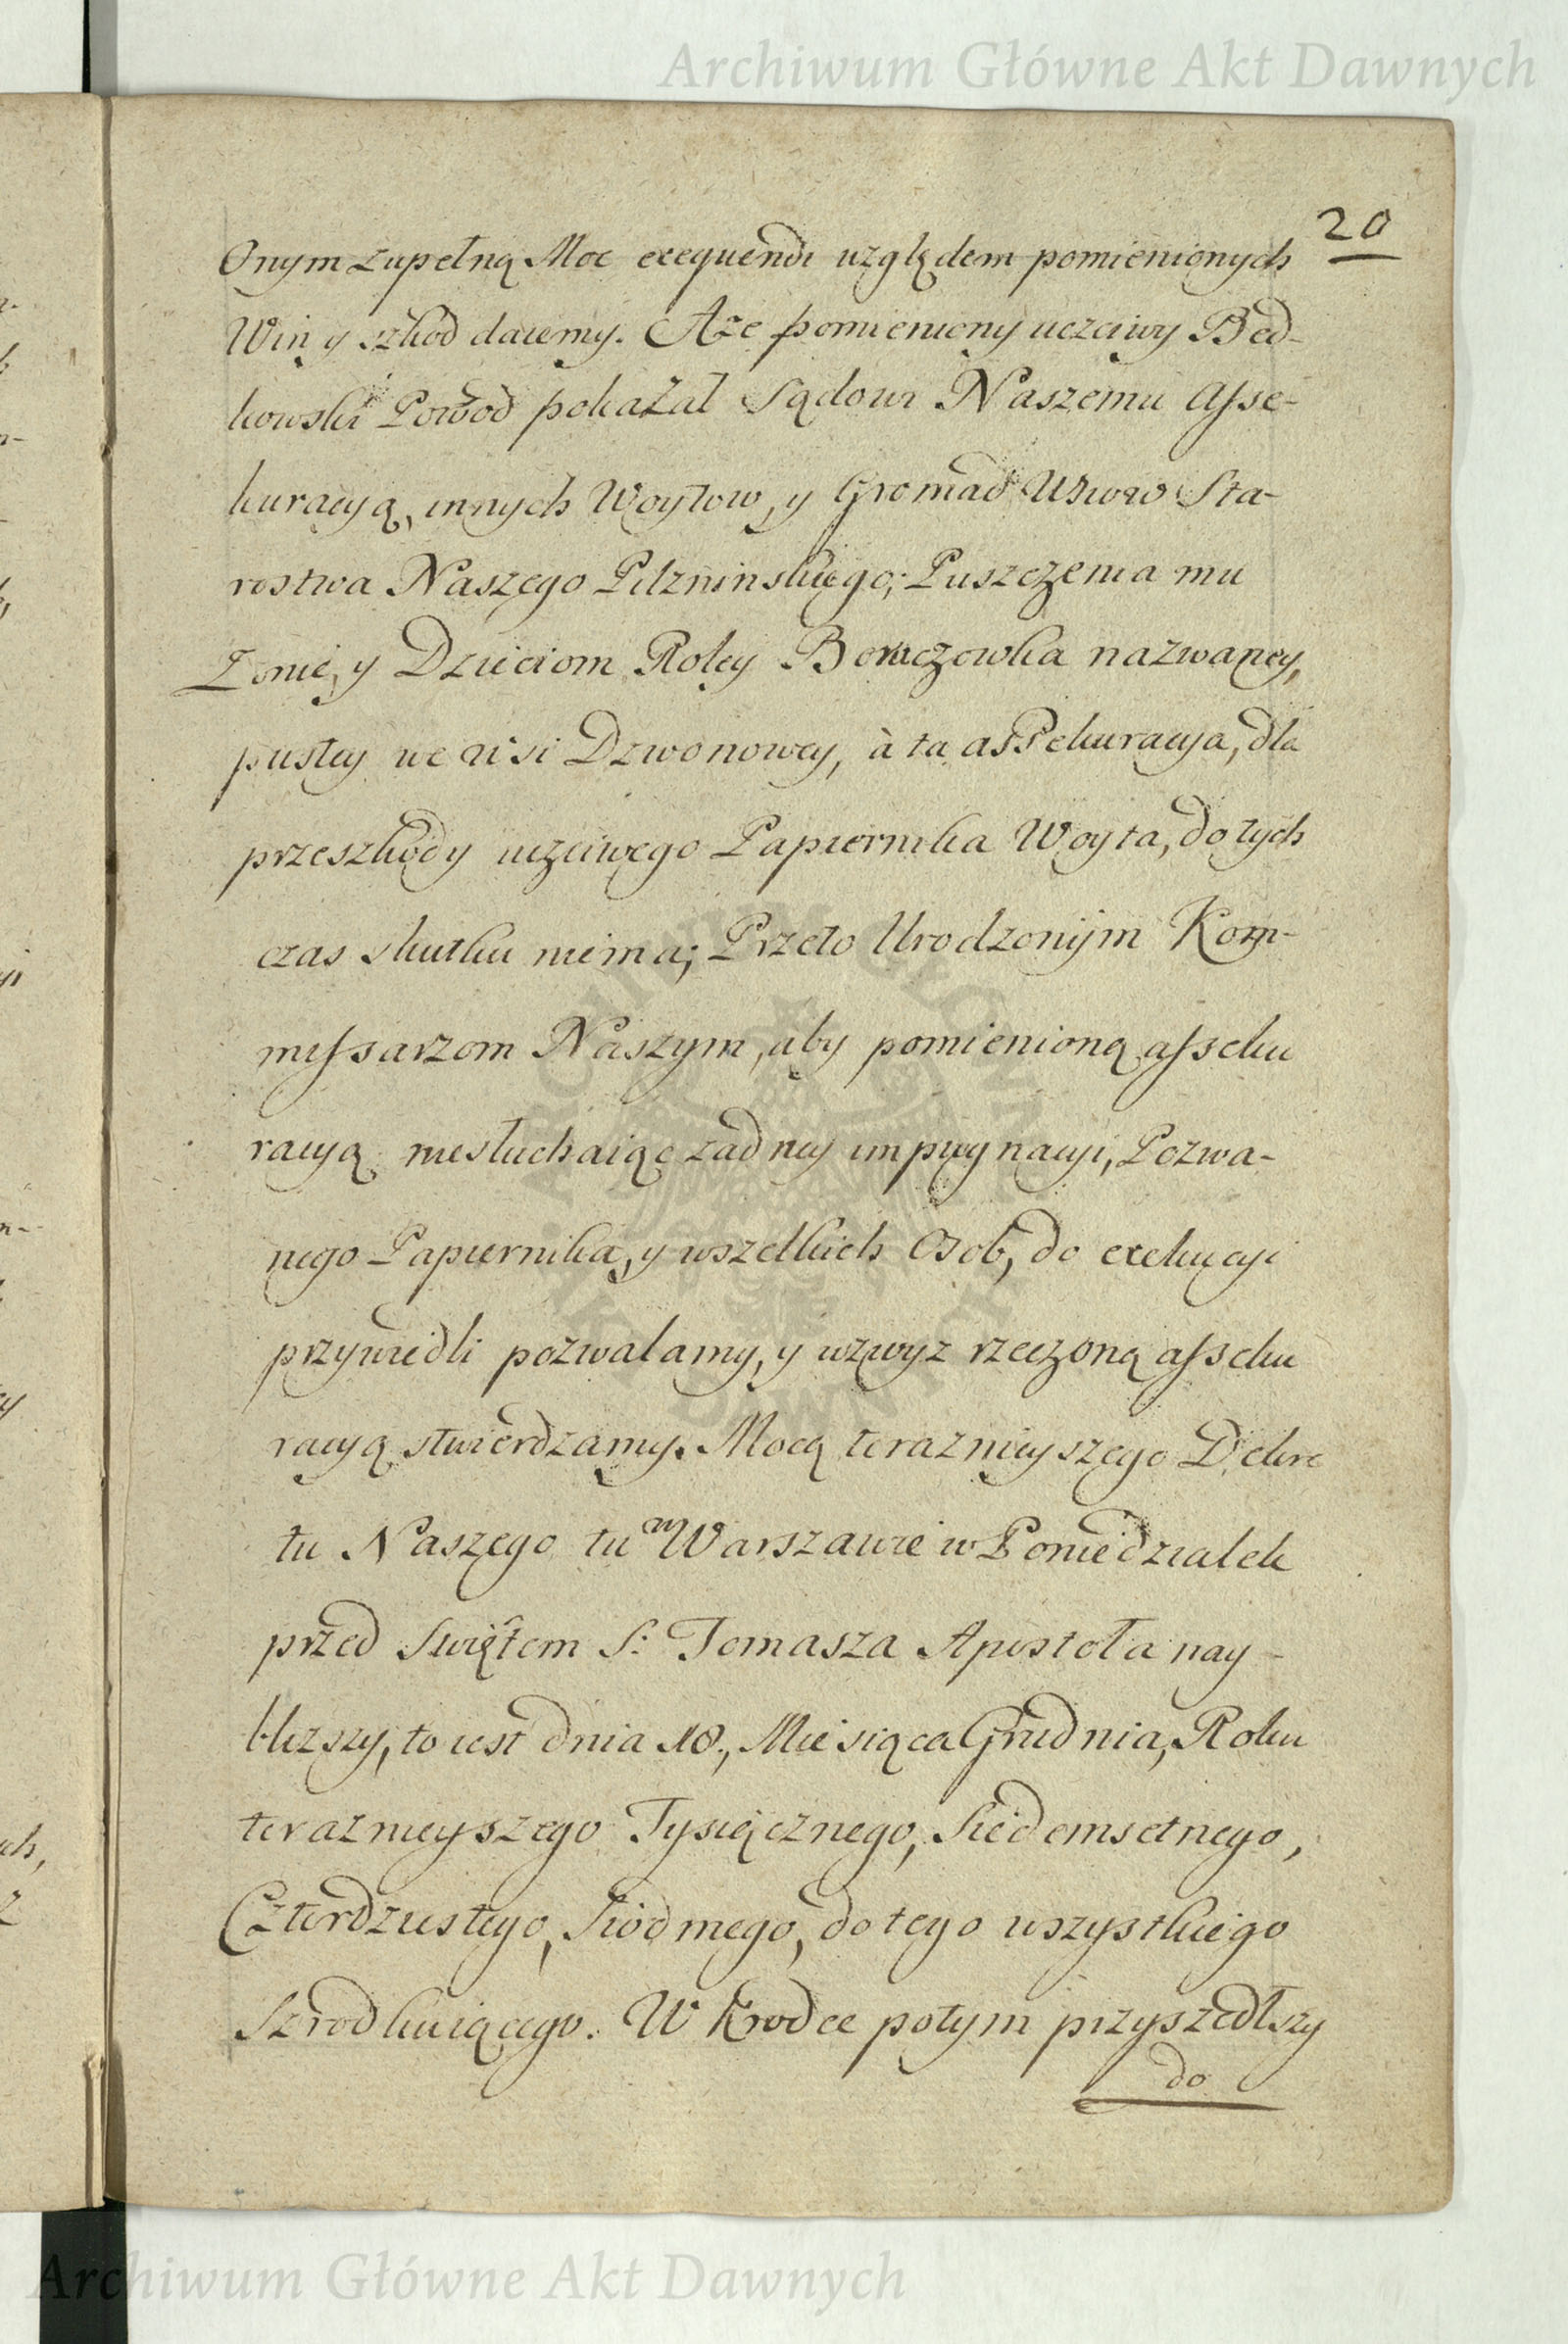 Archiwum Główne Akt Dawnych
20
Onym zupełną Moc exequendi względem pomienionych
Win y szkod daiemy. A że pomieniony uczciwy Bed-
kowski Powod pokazał Sądowi Naszemu Asse-
kuracyą, innych Woytow, y Gromad Wsiów Sta-
rostwa Naszego Pilznińskiego; Puszczenia mu
Żonie, y Dzieciom Roley nazwaney,
pustey we wsi Dzwonowey, à ta assekuracyja, dla
przeszkody uczciwego Papiernika Woyta, do tych
czas skutku niema; Przeto Urodzonÿm Kom-
missarzom Naszym, aby pomienioną asseku
racyą niesłuchaiąc zadney impugnacyi, Pozwa-
nego Papiernika, y wszelkich Osob, do exekucyi
przywiedli pozwalamy, y wzwyz rzeczoną asseku
racyą stwierdzamy. Mocą teraznieyszego Dekre
tu Naszego tu w Warszawie w Poniedziałek
przed Swiętem S: Tomasza Apostoła nay-
bliższy, to iest dnia 18., Miesiąca Grudnia, Roku
teraznieyszego Tysiącznego, Siedemsetnego,
Czterdziestego, Siodmego, do tego wszystkiego
Szrodkuiącego. W Krodce potym przyszedłszy
do
Archiwum Główne Akt Dawnych